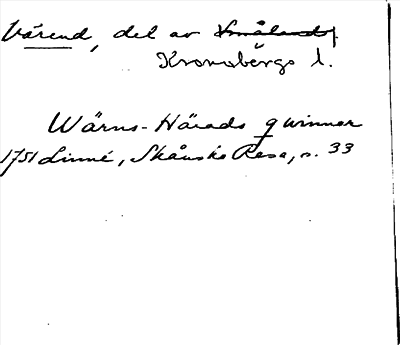 Värend, del av Smålands
Kronobergs l.
Wärns-Härads qwinner
1751 Linné, Skånska Resa, s. 33